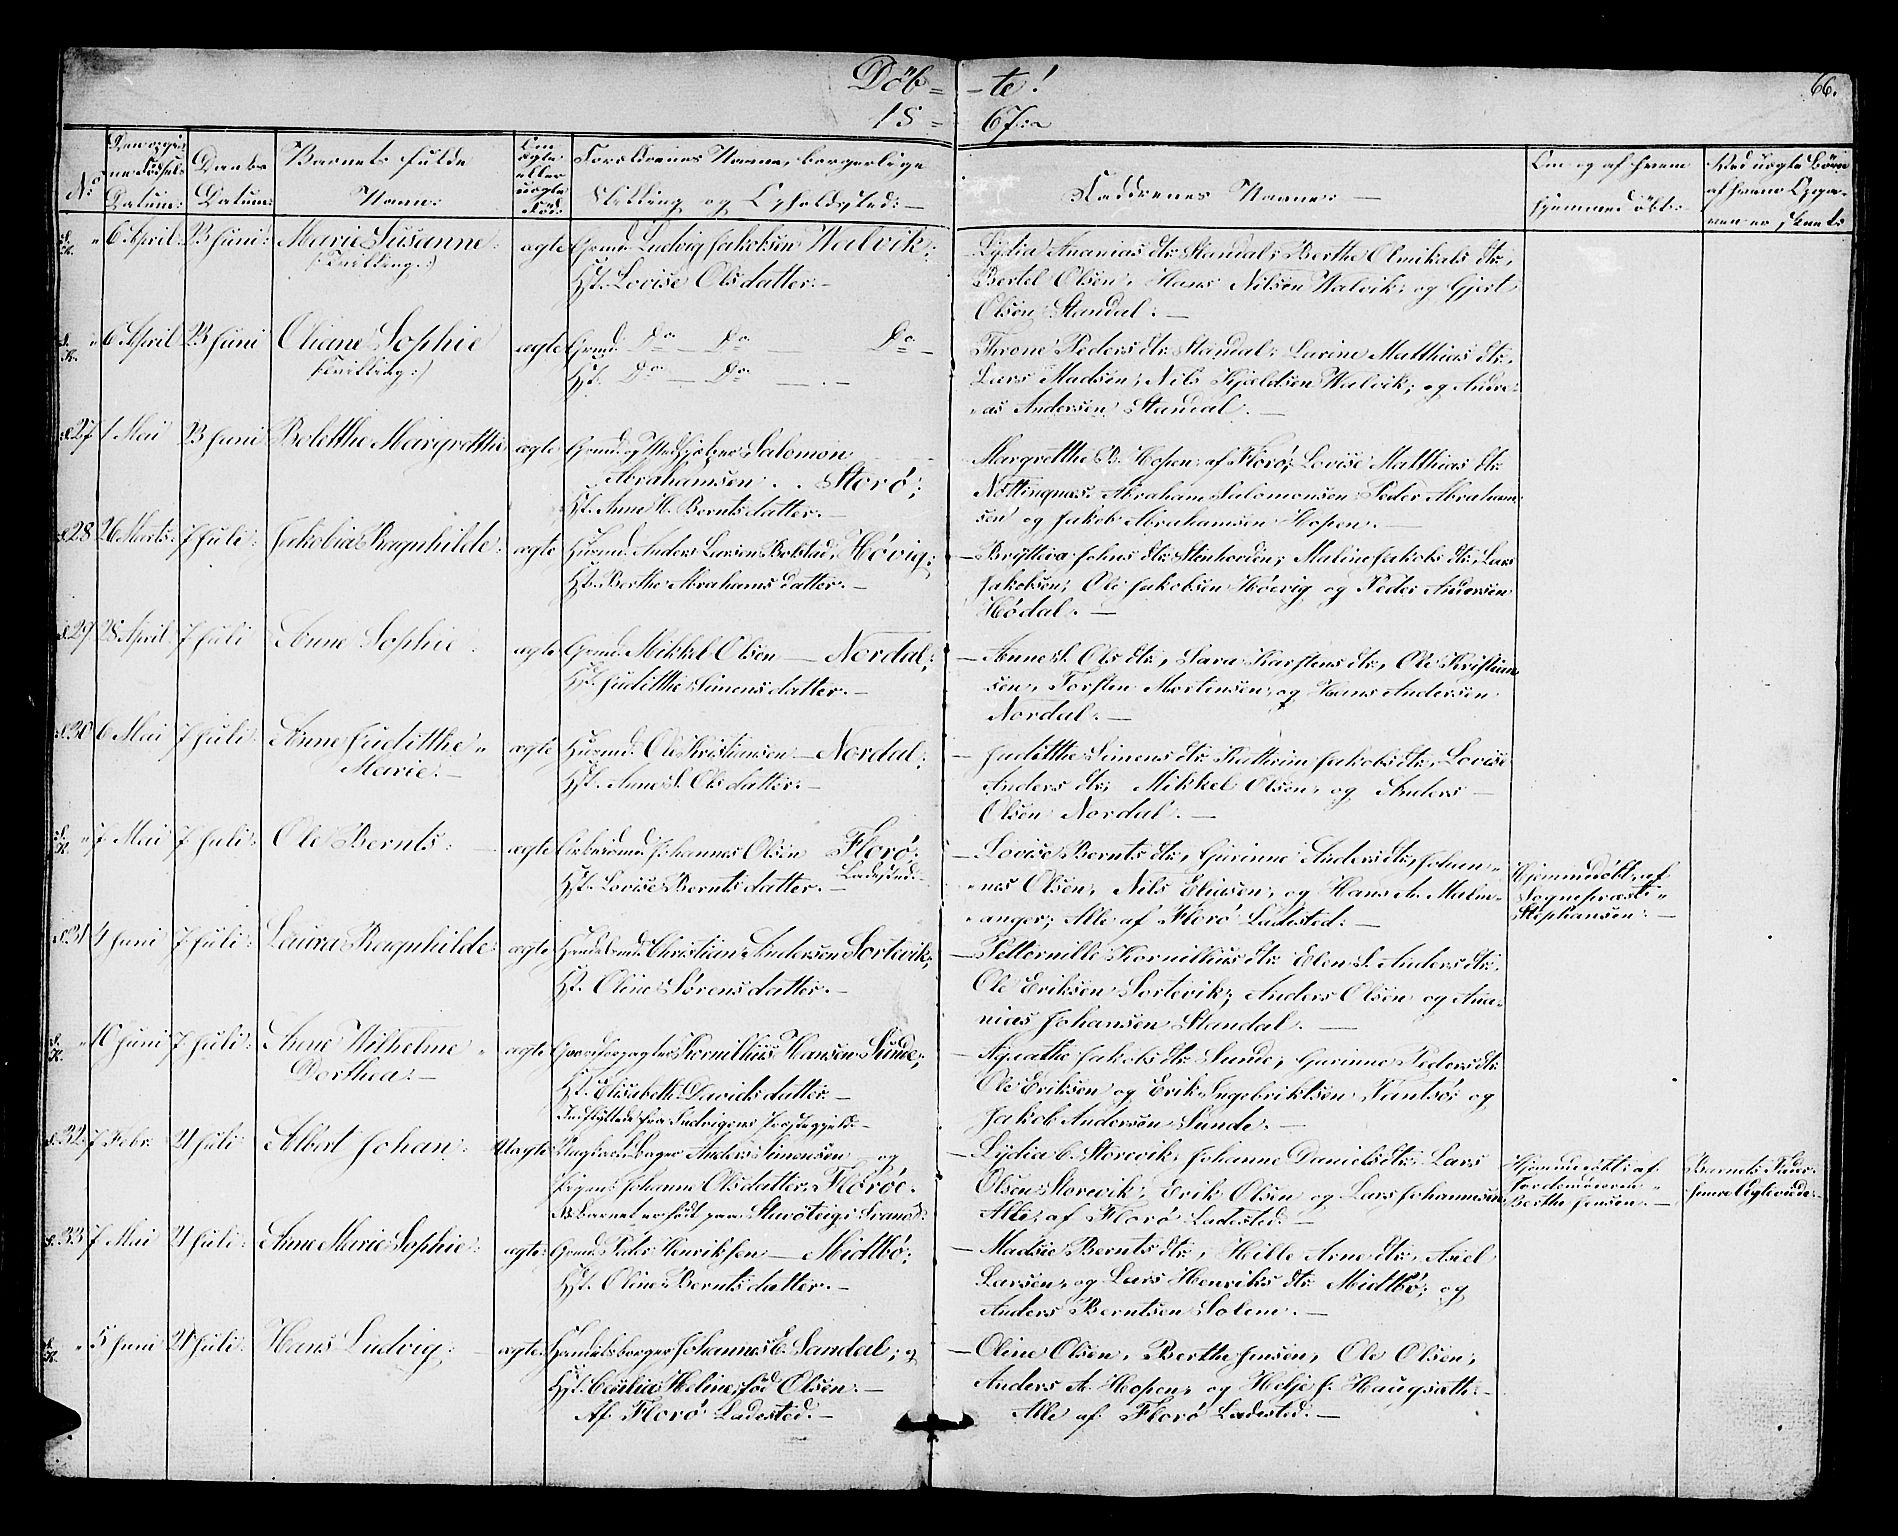 Döb= -te!
66.
18= 67:
No
Datum:
Daabs
Datum:
Barnets fulde
Navn:
ægte
eller
uægte
Forældrenes Navne, borgerlige
Stilling og Opholdssted:—
Faddrenes Navne: —
Om og af hvem
hjemmedöbt:
Ved uægte Börn
6 April: 23 Juni: Marie Susanne: ægte Grmd. Ludvig Jakobsen Walvik;
(: Tvilling:)
Hst. Lovise Olsdatter:—
Lydia Ananias dtr. Standal; Berthe Olmikals dtr,
Bertel Olsen, Hans Nilsen Walvik; og Gjert
Olsen Standal:—
6 April 23 Juni Oliane Sophie ægte Grmd. Do — Do — Do —
Tvilling:)
Hst. Do — Do —
Throne Peders dtr. Standal; Larine Matthias dtr,
Lars Madsen; Nils Kjeldsen Walvik; og Andre-
-as Andersen Standal.—
27 1 Mai 23 Juni Bolette Margretthe ægte Grmd. og Salomon
Abrahamsen .. Storö;
Hst. Anne H. Berntsdatter:—
Margretthe B. Hopen, af Florö; Lovise Matthias dtr.
Nöttingnæs. Abraham Salomonsen Peder Abraham-
sen og Jakob Abrahamsen Hopen.—
28 26 Marts 7 Juli: Jakobia Ragnhilde: ægte Husmd. Anders Larsen Höevig;
Hst. Berthe Abrahams datter:—
Johns dtr. Malene Jakobs dtr; Lars
Jakobsen; Ole Jakobsen Höevig og Peder Andersen
Hödal.—
29 28 April 7 Juli Anne Sophie: ægte Grmd. Mikkel Olsen — Nordal;
Hst. Juditthe Simens datter.—
Anne S. Ols dtr, Sara Karstens dtr, Ole Kristian-
sen, Torsten Mortensen, og Hans Andersen
Nordal:—
30 6 Mai 7 Juli: Anne Juditthe ægte Husmd. Ole Kristiansen — Nordal;
Marie:—
Hst. Anne S. Ols datter:—
Juditthe Simens dtr. Kathrine Jakobs dtr, Lovise
Anders dtr; Mikkel Olsen, og Anders —
Olsen Nordal.—
7 Mai 7 Juli: Ole Bernts: ægte Arbeidsmd. Johannes Olsen Florö;
Hst. Lovise Bernts datter.— Ladested.—
Lovise Bernts dtr, Gurinne Anders dtr, Johan-
nes Olsen, Nils Eliasen, og Hans A. Malm-
anger; Alle af Florö Ladested:—
Hjemmedöbt, af
Sognepræst
Stephansen:—
31 4 Juni 7 Juli: Laura Ragnhilde: ægte Handelsmd. Christian Andersen Sortevik;
Hst. Oline Sörens datter.—
Petternille Kornilius dtr. Elen S. Anders dtr.
Ole Eriksen Sortevik; Anders Olsen og Ana-
nias Johansen Standal.—
10 Juni 7 Juli: Anne Wilhelme ægte Gaardforpagter Kornilius Hansen Sunde;
Dorthea:—
Hst. Elisabeth Davids datter.—
Indflyttede fra Indvigens Præstegjeld:—
Agathe Jakobs dtr. Sunde, Gurinne Peders dtr.
Ole Eriksen og Erik Ingebriktsen Tuntsö; og
Jakob Andersen Sunde.—
32 7 Febr. 21 Juli Albert Johan: Uægte Anders Simensen og
Pigen Johanne Olsdatter, Florö.
Barnet er födt paa
Lydia C. Storevik; Johanne Daniels dtr. Lars
Olsen Storevik; Erik Olsen og Lars Johannesen
Alle; af Florö Ladested:—
Hjemmedöbt: af
Berthe Jensen.—
Barnets Fader
33 7 Mai 21 Juli: Anne Marie Sophie: ægte: Grmd. Peder Henriksen — Midtbö;
Hst. Oline Bernts datter.—
Madsie Bernts dtr, Hille Arne dtr, Axel
Larsen, og Lars Henriks dtr. Midtbö; og
Anders Berntsen Solem.—
5 Juni 21 Juli: Hans Ludvig: ægte: Handelsborger Johannes E. Sandal; og
Hst. Cecilia Heline, född Olsen:—
Af: Florö Ladested.—
Oline Olsen, Berthe Jensen, Ole Olsen;
Anders A. Hopen, og Helje J. Haugsæth:—
Alle af: Florö Ladested.—